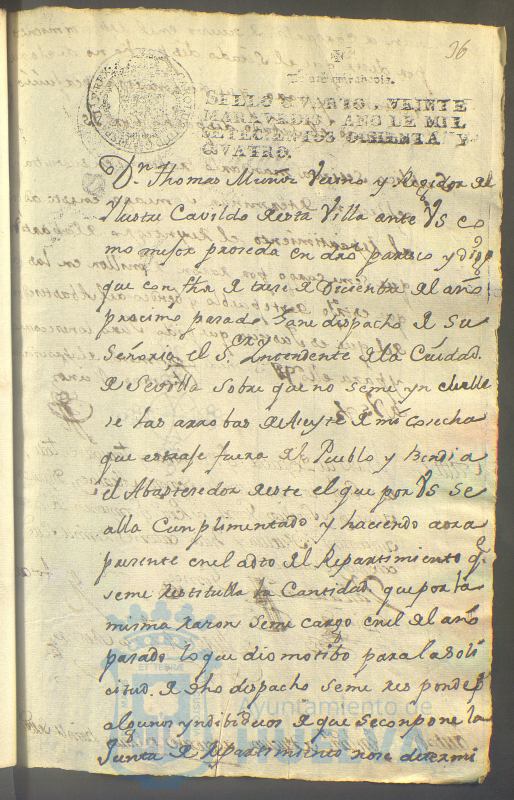 36
SELLO QVARTO, VEINTE
MARAVEDIS, AÑO DE MIL
SETECIENTOS OCHENTA Y
QVATRO.
Dn. Thomas Muñiz Vecino y Regidor del
Ilustre Cavildo de esta Villa ante VS co
mo mejor proseda en dro paresco y digo
que con fha de trese de Disiembre del año
procimo pasado Gane dispacho de Su
Señoria el Sr. Intendente de la Ciudad.
de Sevilla sobre que no seme yncluelle
se las arrobas de Aseyte de mi Cosecha
que estrase fuera del Pueblo y bendi a
el Abastesedor de este el que por VS se
alla Cumplimentado y haciendo aora
presente en el acto del Repartimiento q.e
seme restitulla la Cantidad que por la
misma raron seme cargo en el año
pasado lo que dio motibo para la soli
citud. de dho dispacho seme responde p.r
algunos yndibiduos de que se conpone la
Junta de repartimiento no se determi
Ayuntamiento de
HUELVA